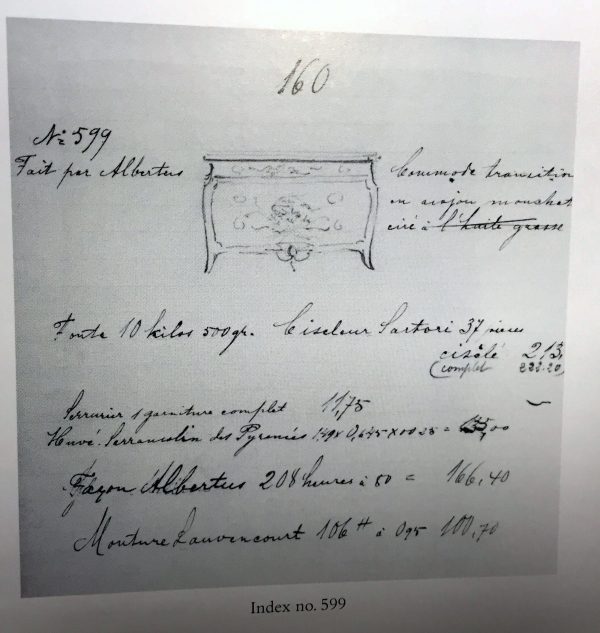 160
No 599
Fait par Albertus
Commode transition
en acajou mouchet
ciré à l'huile grasse
Fonte 10 kilos 500 gr. Ciseleur Sartori 37 pièces
ciselé 213,
(complet 222.20)
Serrurier 1 garniture complet 11,75
Huvé. Serrancolin des Pyrenées 1,49 x 0,645 x = ,00
Façon Albertus 208 heures à 80 = 166,40
Monture Lauvencourt 106 H à 095 100,70
Index no. 599